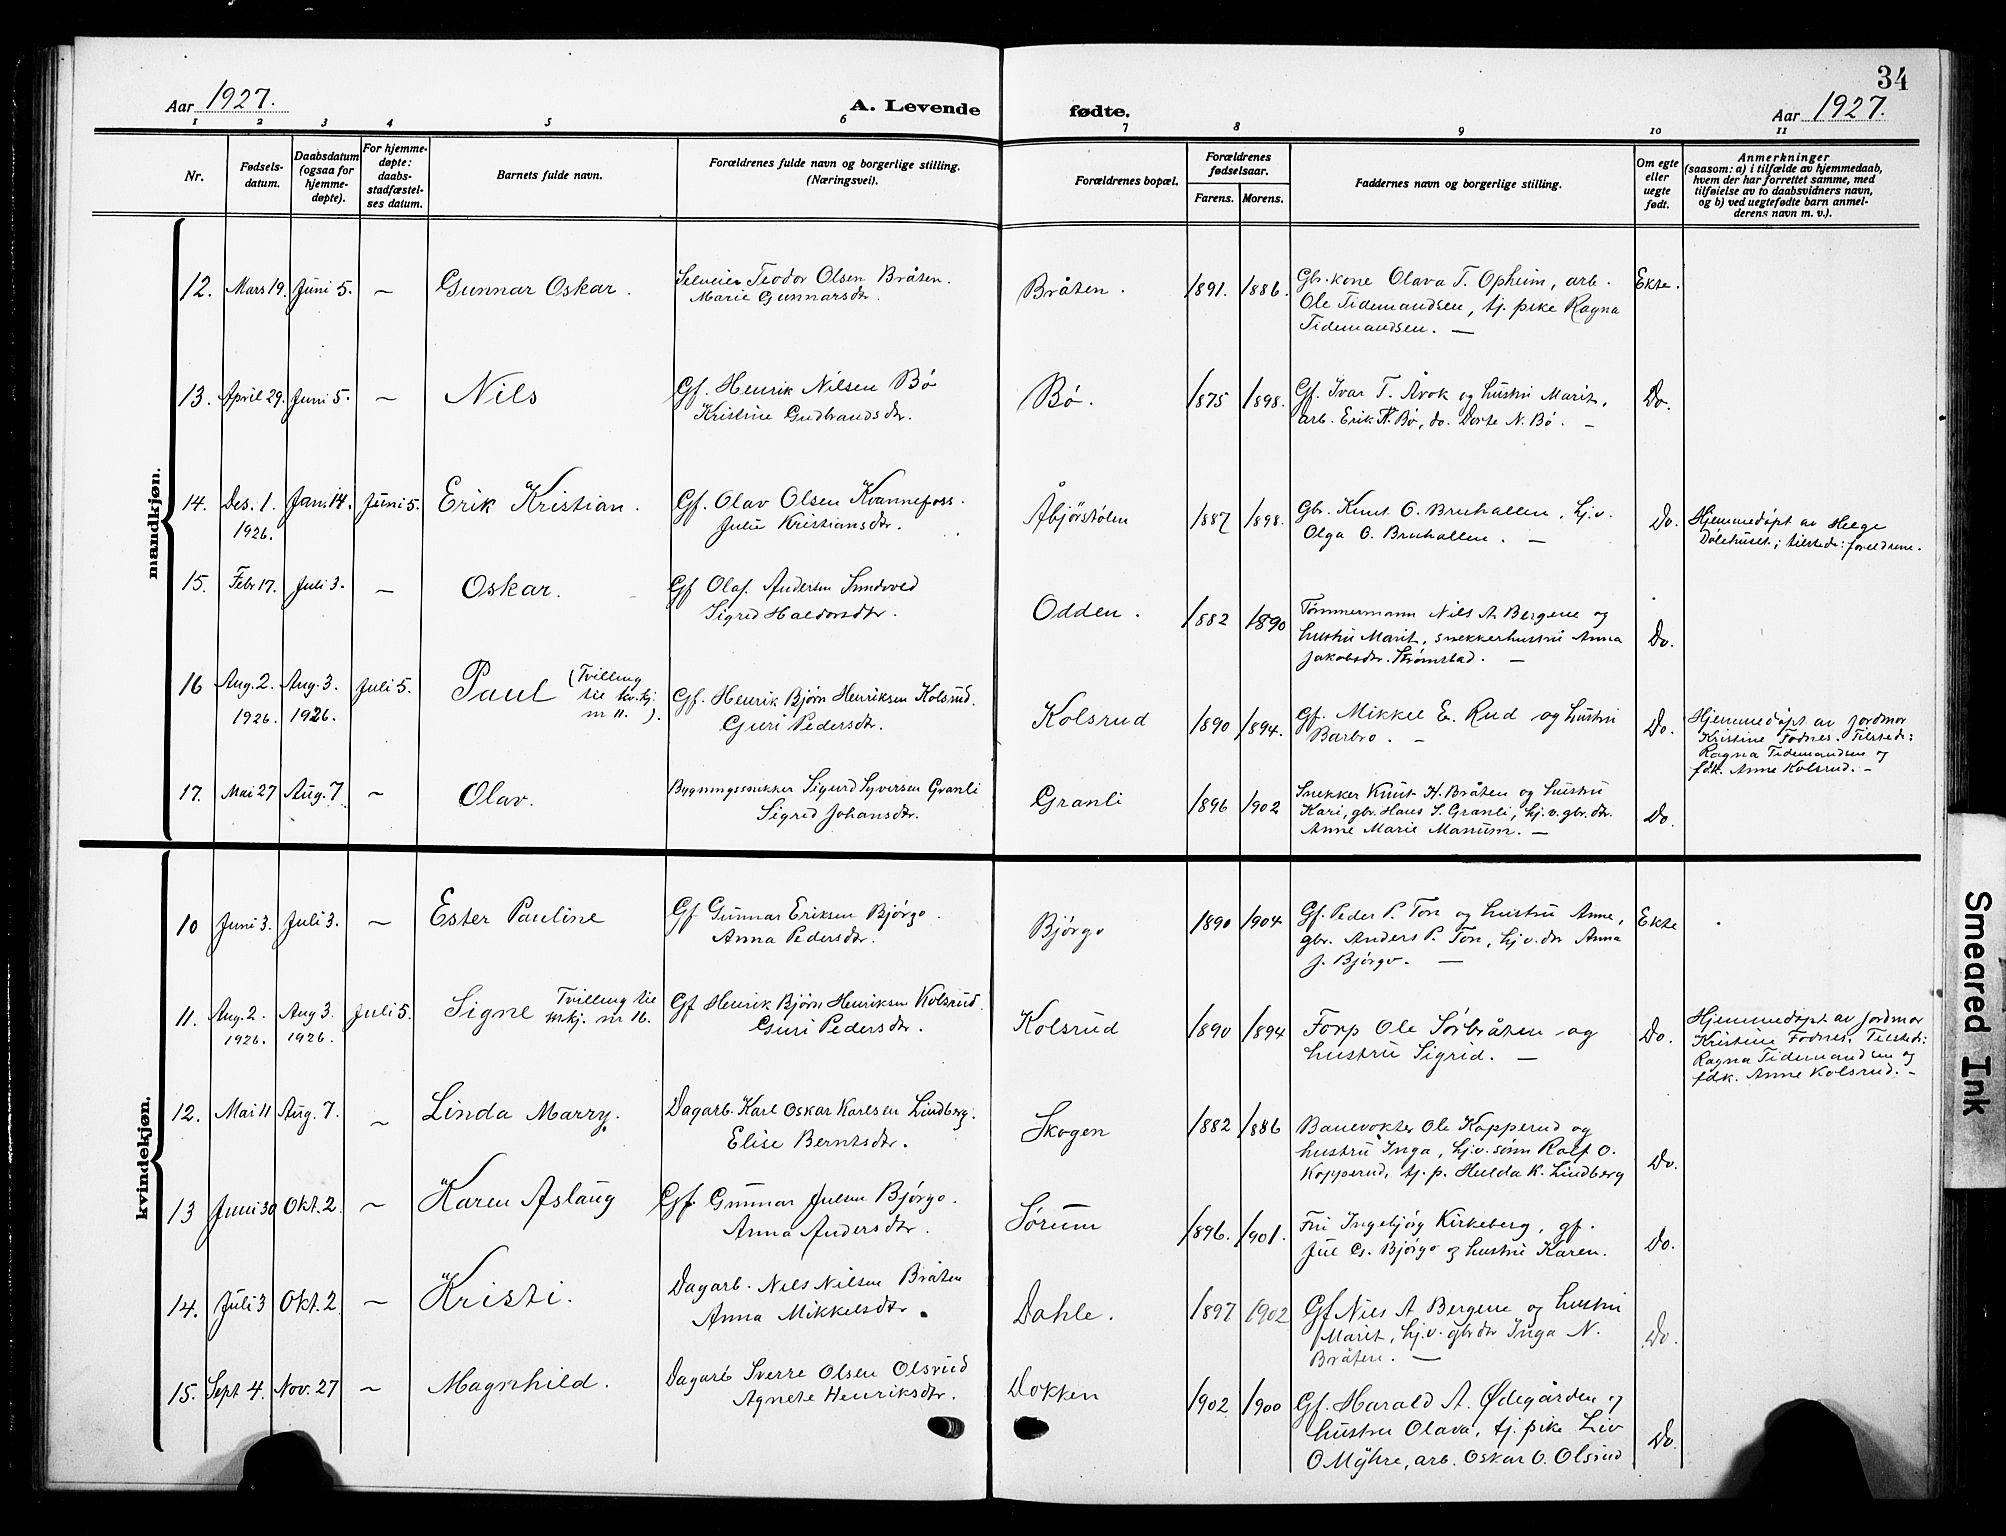 34
Aar 1927.
A. Levende
fødte.
Aar 1927.
1 2 3 4 5 6 7 8 9 10 11
Nr.
Fødsels-
datum.
Daabsdatum
(ogsaa for
hjemme-
døpte).
For hjemme-
døpte:
daabs-
stadfæstel-
ses datum.
Barnets fulde navn.
Forældrenes fulde navn og borgerlige stilling.
(Næringsvei).
Forældrenes bopæl.
Forældrenes
fødselsaar.
Farens. Morens.
Faddernes navn og borgerlige stilling.
Om egte
eller
uegte
født.
Anmerkninger
(saasom: a) i tilfælde av hjemmedaab,
hvem der har forrettet samme, med
tilføielse av to daabsvidners navn,
og b) ved uegtefødte barn anmel-
derens navn m. v.).
mandkjøn.
12. Mars 19. Juni 5. — Gunnar Oskar.
Selveier Teodor Olsen Bråten.
Marie Gunnarsdtr.
Bråten. 1891. 1886.
Gbr.kone Olava T. Opheim, arb.
Ole Tidemandsen, tj. pike Ragna
Tidemandsen. —
Ekte.
13. April 29. Juni 5. — Nils
Gf. Henrik Nilsen Bø
Kristine Gudbrandsdtr.
Bø. 1875 1898.
Gf. Ivar T. Åvok og hustru Marit,
arb. Erik N. Bø, do. Dorte N. Bø. —
Do.
14. Des. 1. Jan. 14. Juni 5. Erik Kristian.
1926.
Gf. Olav Olsen Kvannefoss.
Julie Kristiansdtr.
Åbjørstølen 1887 1898.
Gbr. Knut O. Bruhallen, hj.v.
Olga O. Bruhallen. —
Do.
Hjemmedøpt av Helge
Dølehuset; tilstede: foreldrene.
15. Febr 17. Juli 3. — Oskar.
Gf Olaf Andersen Sundvold
Sigrid Haldorsdtr.
Odden. 1882 1890
Tømmermann Nils A. Bergene og
hustru Marit, snekkerhustru Anna
Jakobsdtr. Strømstad. —
Do.
16 Aug. 2. Aug. 3. Juli 5. Paul (Tvilling
til kv.kj.
nr 11.).
1926. 1926.
Gf. Henrik Bjørn Henriksen Kolsrud.
Guri Pedersdtr.
Kolsrud 1890 1894.
Gf. Mikkel E. Rud og hustru
Barbro. —
Do.
Hjemmedøpt av jordmor
Kristine Fodnes. Tilstede:
Ragna Tidemandsen og
fdk. Anne Kolsrud. —
17. Mai 27 Aug. 7 — Olav.
Bygningssnikker Sigurd Syversen Granli
Sigrid Johansdtr.
Granli 1896 1902
Snekker Knut H. Bråten og hustru
Kari, gbr. Hans S. Granli, hj.v. gbr.dtr.
Anne Marie Manum. —
Do.
kvindekjøn.
10 Juni 3. Juli 3. — Ester Pauline
Gf Gunnar Eriksen Bjørgo.
Anna Pedersdtr.
Bjørgo 1890 1904
Gf. Peder P. Ton og hustru Anne,
gbr. Anders P. Ton, hj.v.dtr Anna
J. Bjørgo. —
Ekte
11. Aug. 2. Aug 3. Juli 5. Signe Tvilling til
mkj. nr 16.
1926. 1926.
Gf Henrik Bjørn Henriksen Kolsrud.
Guri Pedersdtr.
Kolsrud 1890 1894
Forp Ole Sørbråten og
hustru Sigrid. —
Do.
Hjemmedøpt av jordmor
Kristine Fodnes. Tilstede:
Ragna Tidemandsen og
fdk. Anne Kolsrud. —
12. Mai 11 Aug. 7. — Linda Marry.
Dagarb. Karl Oskar Karlsen Lindberg.
Elise Berntsdtr.
Skogen 1882 1886
Banevokter Ole Kopperud og
hustru Inga, hj.v. sønn Rolf O.
Kopperud, tj. p. Hulda K. Lindberg
Do.
13 Juni 30 Okt. 2 — Karen Aslaug
Gf. Gunnar Julsen Bjørgo.
Anna Andersdtr.
Sørum 1896. 1901.
Fru Ingebjørg Kirkeberg, gf.
Jul G. Bjørgo og hustru Karen.
Do.
14. Juli 3 Okt. 2 — Kristi.
Dagarb. Nils Nilsen Bråten
Anna Mikkelsdtr.
Dahle. 1897 1902
Gf Nils A. Bergene og hustru
Marit, hj.v. gbrdtr Inga N.
Bråten. —
Do.
15. Sept 4. Nov. 27 — Magnhild.
Dagarb Sverre Olsen Olsrud
Agnete Henriksdtr.
Dokken 1902 1900
Gf. Harald A. Ødegården og
hustru Olava, tj. pike Liv
O Myhre, arb. Oskar O. Olsrud
Do.
Smeared Ink